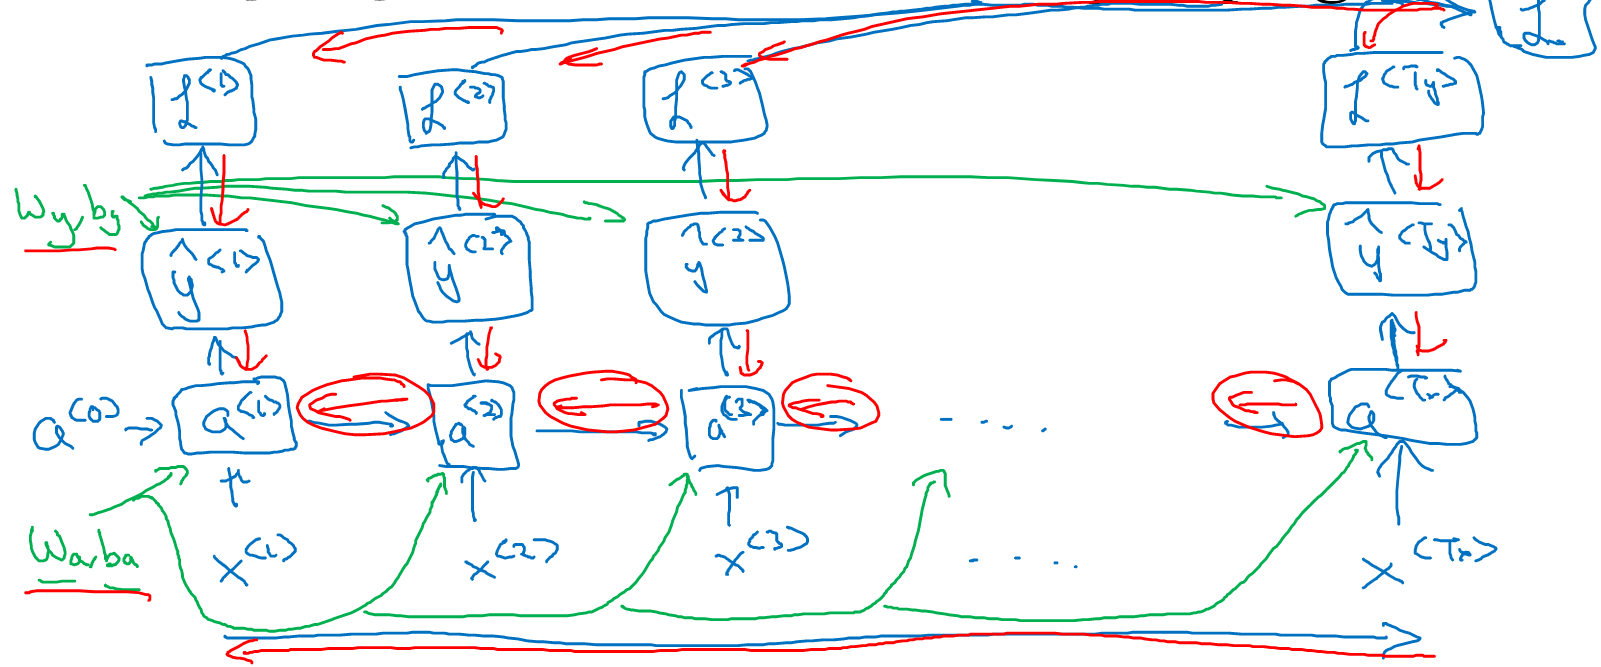 ℒ
ℒ<1> ℒ<2> ℒ<3> ℒ<Ty>
Wy, by
ŷ<1> ŷ<2> ŷ<2> ŷ<Ty>
a<0> → a<1> a<2> a<3> - . . . a<Tx>
Wa, ba
x<1> x<2> x<3> . . . . x<Tx>